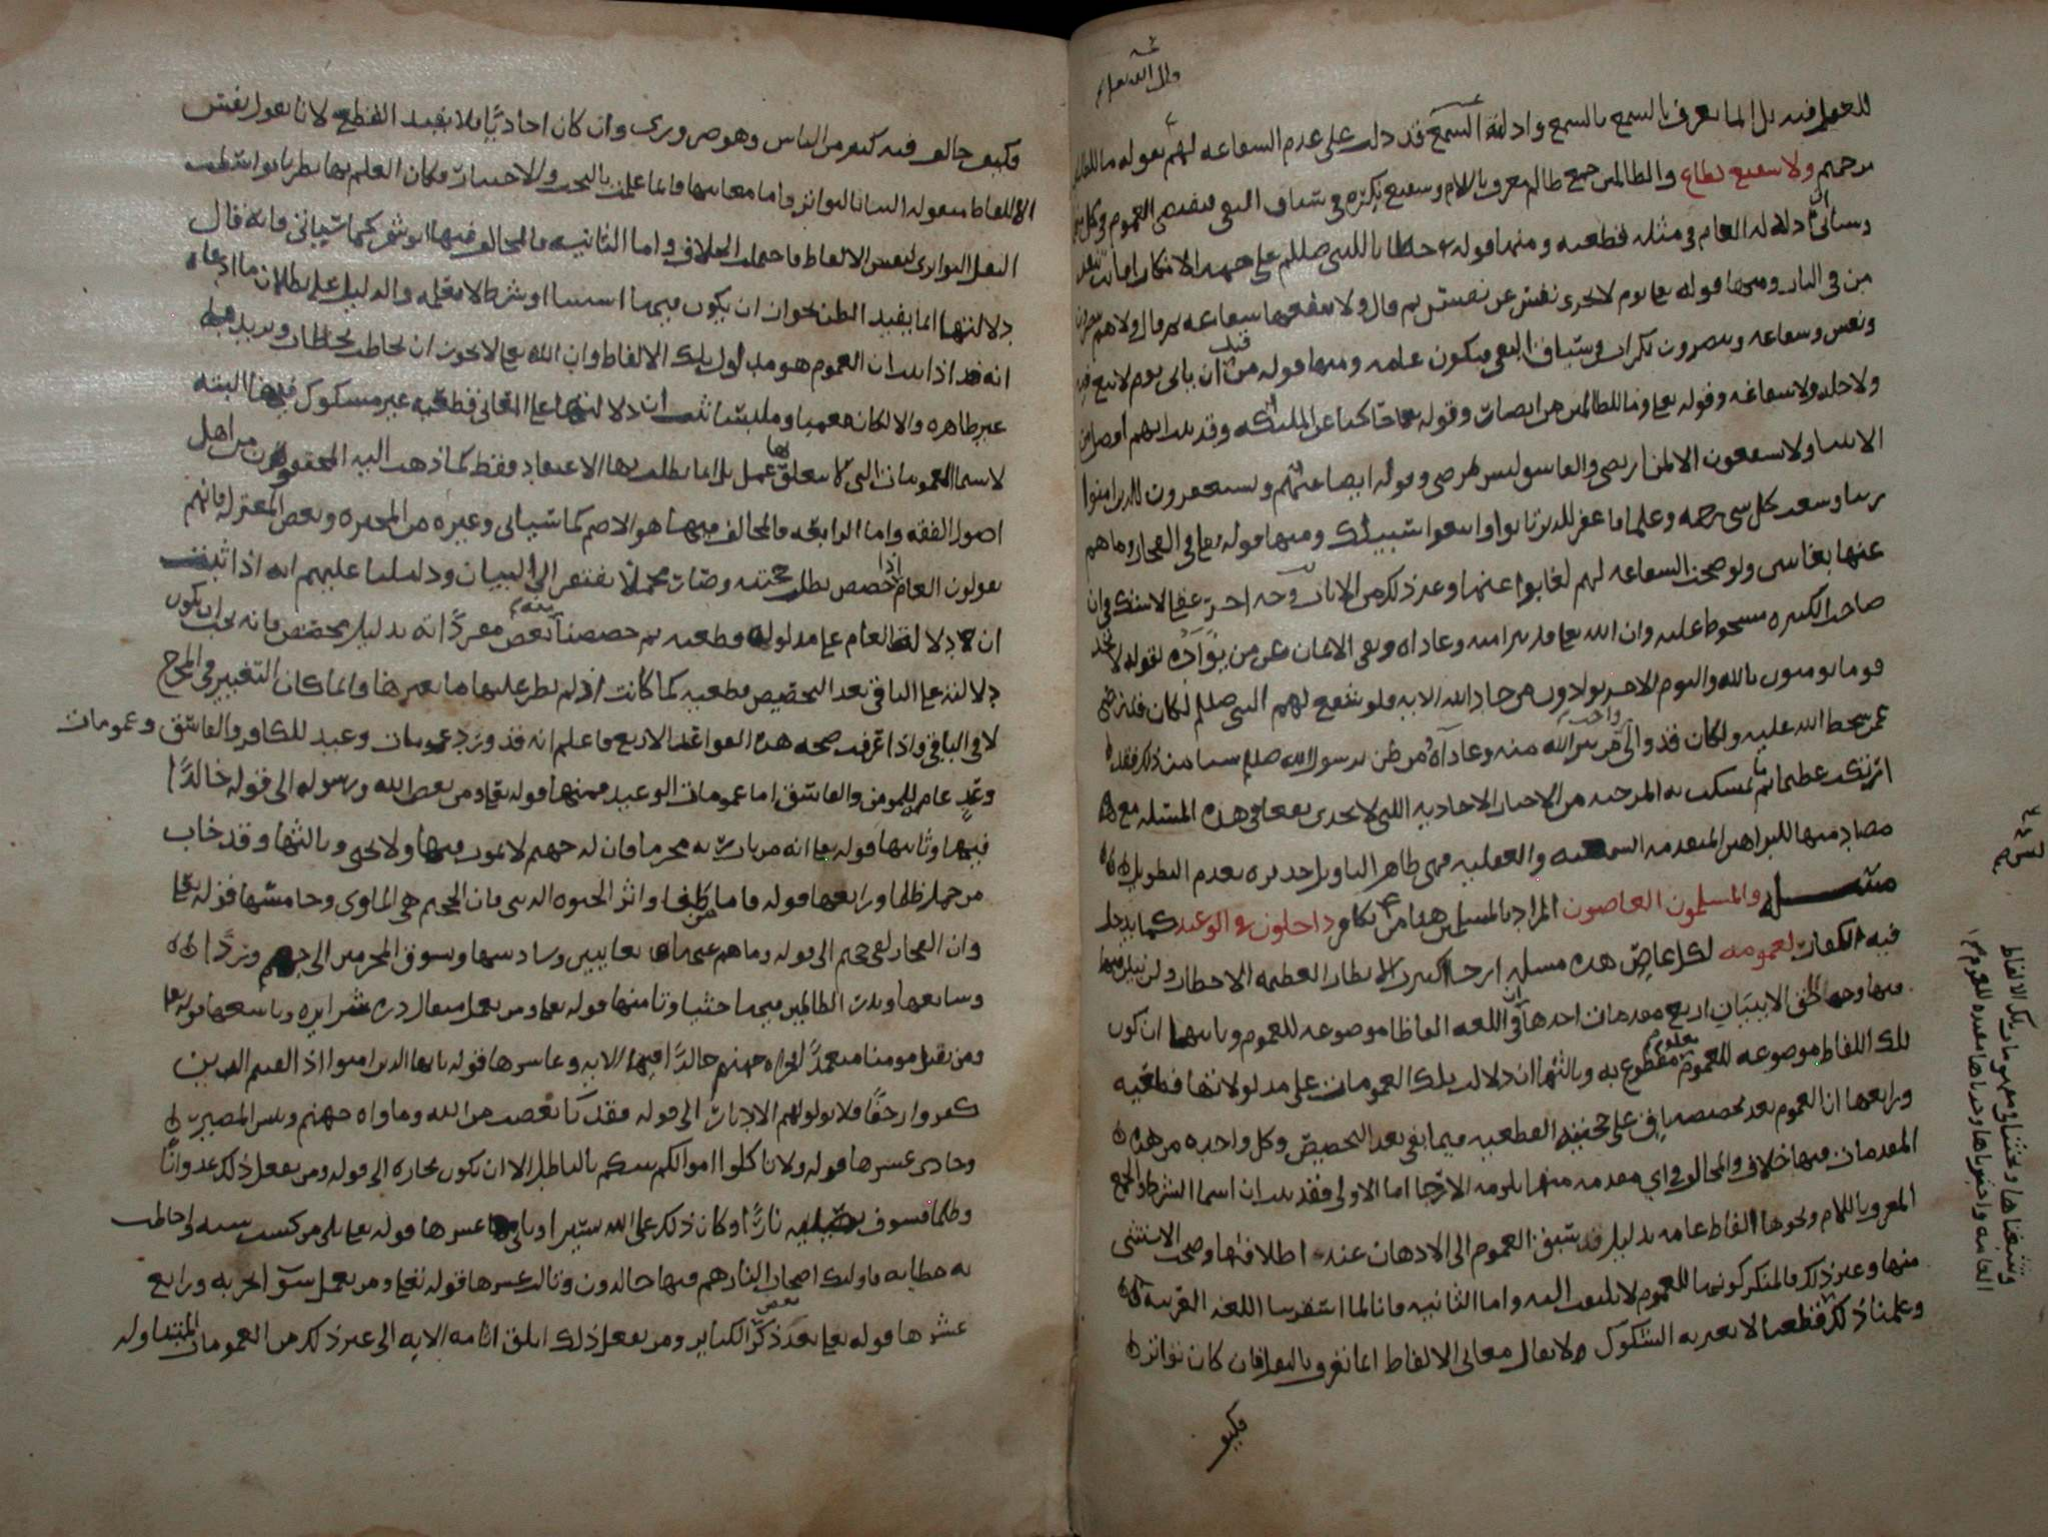 وان الله يعلم
للعقل فيه بل انما يعرف بالسمع وادلة السمع قد دلت على عدم الشفاعه لهم بقوله ما للظالمين
من حميم ولا شفيع يطاع والظالمين جمع ظالم معرف باللام وشفيع نكره في سياق النفي فيقتضي العموم في كل
وسياتي ان دلاله العام في مثله قطعيه ومنها قوله خطابا للنبي صللم على جهه الانكار افانت تنقذ
من في النار ومنها قوله تعا يوم لا تجزى نفس عن نفس ثم قال ولا تنفعها شفاعه ثم قال ولا هم ينصرون
ونفس وشفاعه وينصرون نكرات في سياق النفي فيكون عامه ومنها قوله من قبل ان ياتي يوم لا بيع فيه
ولا خله ولا شفاعه وقوله تعا وما للظالمين من انصار وقوله تعا حاكيا عن الملئكه وقد
الانبيا ولا يشفعون الا لمن ارتضى والفاسق ليس بمرتضى وقوله ايضا عنهم ويستغفرون للذين امنوا
ربنا وسعت كل شي رحمه وعلما فاغفر للذين تابوا واتبعوا سبيلك ومنها قوله تعا في الفجار وما هم
عنها بغائبين ولو صحت الشفاعه لهم لغابوا عنها وغير ذلك من الايات
صاحب الكبيره مسخوط عليه وان الله تعا قد تبرا منه وعاداه ونفى الايمان عن من يواده لقوله لا تجد
قوما يومنون بالله واليوم الاخر يوادون من حاد الله الايه فلو شفع لهم النبي صللم لكان قد رضي
عمن سخط الله عليه ولكان قد والى من تبرا الله منه وعاداه ومن ظن برسول الله صللم شيا من ذلك فقد
ارتكب عظيما ثم ما تمسكت به المرجيه من الاخبار الاحاديه التي لا تجدي نفعا في هذه المسئله مع
مصادمتها للبراهين المتقدمه السمعيه والعقليه فهي ظاهر التاويل
مسئله والمسلمون العاصون المراد بالمسلمين هنا من ليس بكافر داخلون في الوعيد كما يدخل
فيه الكفار لعمومه لكل عاص هذه مسئله الارجا اكبرت الانظار العظيمه
فيها وجه الحق الا ببيان اربع مقدمات احدها ان في اللغه الفاظا موضوعه للعموم وثانيها ان كون
تلك اللفاظ موضوعه للعموم معلوم مقطوع به وثالثها ان دلاله تلك العمومات على مدلولاتها قطعيه
ورابعها ان العموم بعد تخصيصه باق على حجيته القطعيه فيما بقي بعد التخصيص وكل واحده من هذه
المقدمات فيها خلاف والمخالف في اي مقدمه منها يلزمه الارجا اما الاولى فقد بينا ان اسما الشرط والجمع
المعرف باللام ونحوها الفاظ عامه بدليل قد سبق العموم الى الاذهان عند اطلاقها وصحت الاستثنى
منها وغير ذلك فالمنكر كونها للعموم لا يلتفت اليه واما الثانيه فانا لما استقرينا اللغه العربيه
وعلمنا ذلك قطعا لا يعتريه الشكوك ولا يقال معاني الالفاظ انما تعرف بالنقل فان كان تواترا
فكيف
فكيف خالف فيه كثير من الناس وهو ضروري وان كان احاديا فلا يفيد القطع لانا نقول نفس
الالفاظ منقوله الينا بالتواتر واما معانيها فانما علمت بالبحث والاختبار فكان العلم بها نظريا بواسطه
النقل التواتري لنفس الالفاظ فاحتملت الخلاف واما الثانيه فالمخالف فيها ابو شمر كما سياتي فانه قال
دلالتها انما يفيد الظن لجواز ان يكون فيها استثنا او شرط لا نعلمه والدليل على بطلان ما ادعاه
انه قد اذا ثبت ان العموم هو مدلول تلك الالفاظ وان الله تعا لا يجوز ان يخاطب بخطاب ويريد به
غير ظاهره والا لكان معميا وملبسا ثبت ان دلالتها على المعاني قطعيه غير مشكوك فيها البته
لا سيما العمومات التي لا يتعلق بها عمل بل انما يطلب بها الاعتقاد فقط كما ذهب اليه المحققون من اهل
اصول الفقه واما الرابعه فالمخالف فيها هو الاصم كما سياتي وغيره من المجبره وبعض المعتزله فانهم
يقولون العام اذا خصص بطلت حجيته وصار مجملا يفتقر الى البيان ودليلنا عليهم انه اذا ثبت
ان دلالة العام على مدلوله قطعيه ثم خصصنا بعض مفرداته بدليل مخصص فانه يجب ان يكون
دلالته على الباقي بعد التخصيص قطعيه كما كانت اذ لم يطر عليها ما يغيرها وانما كان التغيير في المخرج
لا في الباقي واذا عرفت صحه هذه القواعد الاربع فاعلم انه قد ورد عمومات وعيد للكافر والفاسق وعمومات
وعد عام للمومن والفاسق اما عمومات الوعيد فمنها قوله تعا ومن يعص الله ورسوله الى قوله خالدا
فيها وثانيها قوله تعا انه من يات ربه مجرما فان له جهنم لا يموت فيها ولا يحيى وثالثها وقد خاب
من حمل ظلما ورابعها قوله فاما من طغى واثر الحيوه الدنيا فان الجحيم هي الماوى وخامسها قوله تعا
وان الفجار لفي جحيم الى قوله وما هم عنها بغايبين وسادسها ونسوق المجرمين الى جهنم وردا
وسابعها ونذر الظالمين فيها جثيا وثامنها قوله تعا ومن يعمل مثقال ذره شرا يره وتاسعها قوله تعا
ومن يقتل مومنا متعمدا فجزاه جهنم خالدا فيها الايه وعاشرها قوله يا ايها الذين امنوا اذا لقيتم الذين
كفروا زحفا فلا تولوهم الادبار الى قوله فقد باء بغضب من الله وماواه جهنم وبئس المصير
وحادي عشرها قوله ولا تاكلوا اموالكم بينكم بالباطل الا ان تكون تجاره الى قوله ومن يفعل ذلك عدوانا
وظلما فسوف نصليه نارا وكان ذلك على الله يسيرا وثاني عشرها قوله تعا بلى من كسب سيئه واحاطت
به خطايه فاولئك اصحاب النار هم فيها خالدون وثالث عشرها قوله تعا ومن يعمل سوءا يجز به ورابع
عشرها قوله تعا بعد ذكر بعض الكباير ومن يفعل ذلك يلق اثاما الايه الى غير ذلك من العمومات المتناوله